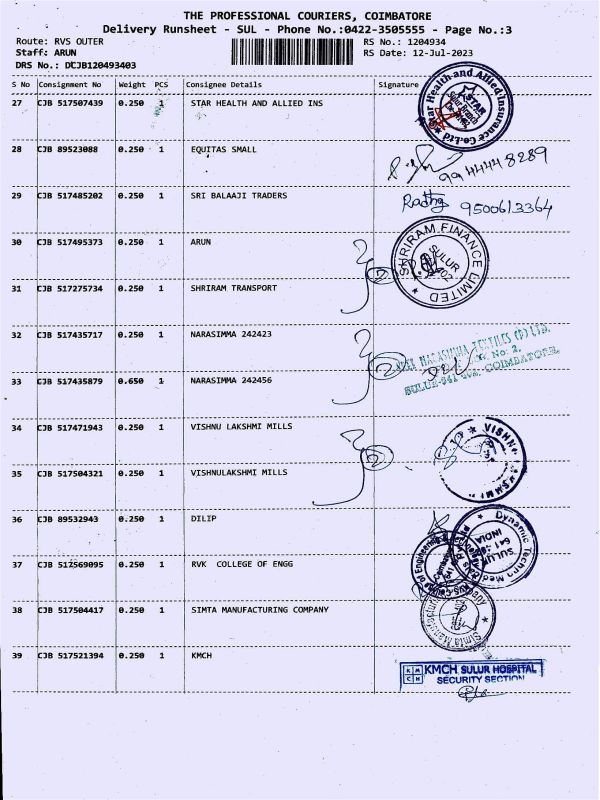 THE PROFESSIONAL COURIERS, COIMBATORE
Delivery Runsheet - SUL - Phone No.:0422-3505555 - Page No.:3
Route: RVS OUTER RS No.: 1204934
Staff: ARUN RS Date: 12-Jul-2023
DRS No.: DCJB120493403
S No Consignment No Weight PCS Consignee Details Signature
27 CJB 517507439 0.250 1 STAR HEALTH AND ALLIED INS
Star Health and Allied Insurance Co.Ltd
STAR
Sulur Branch
28 CJB 89523088 0.250 1 EQUITAS SMALL
9944448289
29 CJB 517485202 0.250 1 SRI BALAAJI TRADERS
Radha 9500613364
30 CJB 517495373 0.250 1 ARUN
SHRIRAM FINANCE LIMITED
SULUR
2
31 CJB 517275734 0.250 1 SHRIRAM TRANSPORT
32 CJB 517435717 0.250 1 NARASIMMA 242423
NARASIMMA TEXTILES (P) LTD.
No: 2,
COIMBATORE.
2
33 CJB 517435879 0.650 1 NARASIMMA 242456
34 CJB 517471943 0.250 1 VISHNU LAKSHMI MILLS
VISHNU
2
35 CJB 517504321 0.250 1 VISHNULAKSHMI MILLS
36 CJB 89532943 0.250 1 DILIP
Dynamic Techno Med
SULUR
641
INDIA
37 CJB 512569095 0.250 1 RVK COLLEGE OF ENGG
College of Engineering
38 CJB 517504417 0.250 1 SIMTA MANUFACTURING COMPANY
Simta
39 CJB 517521394 0.250 1 KMCH
KMCH SULUR HOSPITAL
SECURITY SECTION